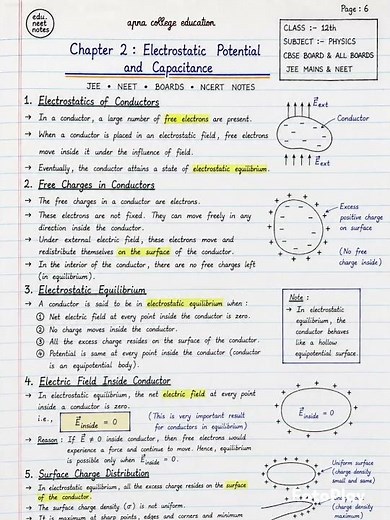 Page : 6
edu.
neet
notes
apna college education
Chapter 2 : Electrostatic Potential
and Capacitance
CLASS :- 12th
SUBJECT :- PHYSICS
CBSE BOARD & ALL BOARDS
JEE MAINS & NEET
JEE • NEET • BOARDS • NCERT NOTES
1. Electrostatics of Conductors
→ In a conductor, a large number of free electrons are present.
→ When a conductor is placed in an electrostatic field, free electrons
move inside it under the influence of field.
→ Eventually, the conductor attains a state of electrostatic equilibrium.
E⃗ext
Conductor
E⃗ext
2. Free Charges in Conductors
→ The free charges in a conductor are electrons.
→ These electrons are not fixed. They can move freely in any
direction inside the conductor.
→ Under external electric field, these electrons move and
redistribute themselves on the surface of the conductor.
→ In the interior of the conductor, there are no free charges left
(in equilibrium).
Excess
positive charge
on surface
(No free
charge inside)
3. Electrostatic Equilibrium
→ A conductor is said to be in electrostatic equilibrium when :
① Net electric field at every point inside the conductor is zero.
② No charge moves inside the conductor.
③ All the excess charge resides on the surface of the conductor.
④ Potential is same at every point inside the conductor (conductor
is an equipotential body).
Note :
→ In electrostatic
equilibrium, the
conductor behaves
like a hollow
equipotential surface.
4. Electric Field Inside Conductor
→ In electrostatic equilibrium, the net electric field at every point
inside a conductor is zero.
i.e., E⃗inside = 0
(This is very important result
for conductors in equilibrium)
→ Reason : If E⃗ ≠ 0 inside conductor, then free electrons would
experience a force and continue to move. Hence, equilibrium
is possible only when E⃗inside = 0.
E⃗inside = 0
5. Surface Charge Distribution
→ In electrostatic equilibrium, all the excess charge resides on the surface
of the conductor.
→ The surface charge density (σ) is not uniform.
→ It is maximum at sharp points, edges and corners and minimum
Uniform surface
(charge density
small and same)
(charge density